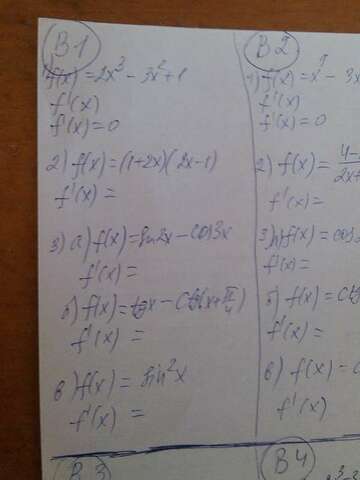 В1
1) f(x) = 2x³ - 3x² + 1
f'(x)
f'(x) = 0
2) f(x) = (1+2x)(2x-1)
f'(x) =
3) а) f(x) = sin2x - cos3x
f'(x) =
б) f(x) = tgx - ctg(x + π/4)
f'(x) =
в) f(x) = sin²x
f'(x) =
В2
1) f(x) = x - 3x
f'(x)
f'(x) = 0
2) f(x) = 4-/2x+
f'(x) =
3) а) f(x) = cos2
f'(x) =
б) f(x) = ctg
f'(x) =
в) f(x) =
f'(x)
В3
В4